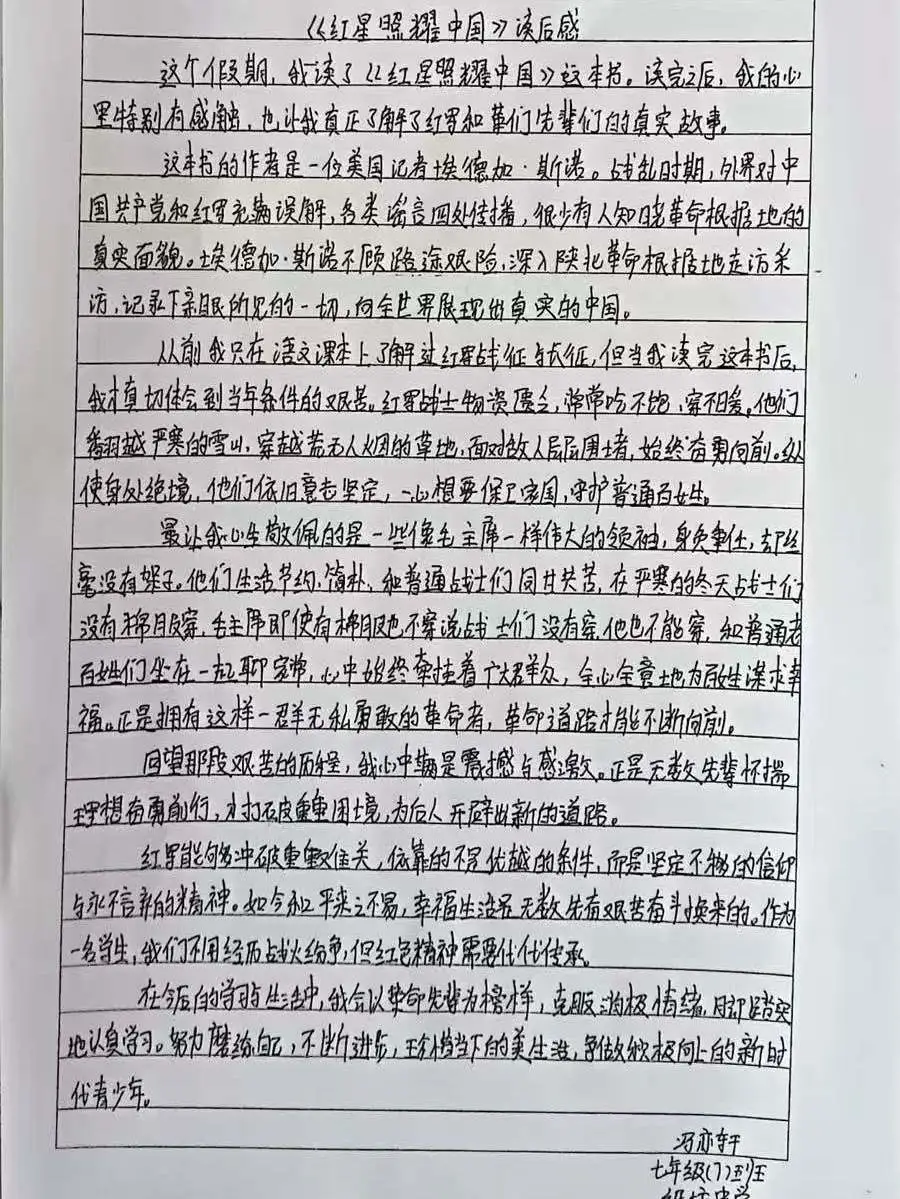 《红星照耀中国》读后感
这个假期，我读了《红星照耀中国》这本书。读完之后，我的心
里特别有感触，也让我真正了解了红军和革们先辈们的真实故事。
这本书的作者是一位美国记者埃德加·斯诺。战乱时期，外界对中
国共产党和红军充满误解，各类谣言四处传播，很少有人知晓革命根据地的
真实面貌。埃德加·斯诺不顾路途艰险，深入陕北革命根据地走访采
访，记录下亲眼所见的一切，向全世界展现出真实的中国。
从前我只在语文课本上了解过红军战征与长征，但当我读完这本书后，
我才真切体会到当年条件的艰苦。红军战士物资匮乏，常常吃不饱，穿不暖。他们
翻越严寒的雪山，穿越荒无人烟的草地，面对敌人层层围堵，始终奋勇向前。纵
使身处绝境，他们依旧意志坚定，一心想要保卫家国，守护普通百姓。
最让我心生敬佩的是一些像毛主席一样伟大的领袖，身负重任，却丝
毫没有架子。他们生活节约、简朴，和普通战士们同甘共苦，在严寒的冬天战士们
没有棉服穿，毛主席即使有棉服也不穿说战士们没有穿，他也不能穿，和普通老
百姓们坐在一起聊家常，心中始终牵挂着广大群众，全心全意地为百姓谋求幸
福。正是拥有这样一群无私勇敢的革命者，革命道路才能不断向前。
回望那段艰苦的历程，我心中满是震撼与感激。正是无数先辈怀揣
理想奋勇前行，才打破重重困境，为后人开辟出新的道路。
红军能够冲破重重难关，依靠的不是优越的条件，而是坚定不移的信仰
与永不言弃的精神。如今和平来之不易，幸福生活是无数先辈艰苦奋斗换来的。作为
一名学生，我们不用经历战火纷争，但红色精神需要代代传承。
在今后的学习与生活中，我会以革命先辈为榜样，克服消极情绪，脚踏实
地认真学习。努力磨练自己，不断进步，珍惜当下的美生活，争做积极向上的新时
代青少年。
冯亦轩
七年级(7)班
中学